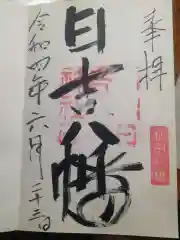 奉拝
日吉八幡
令和四年六月二十三日